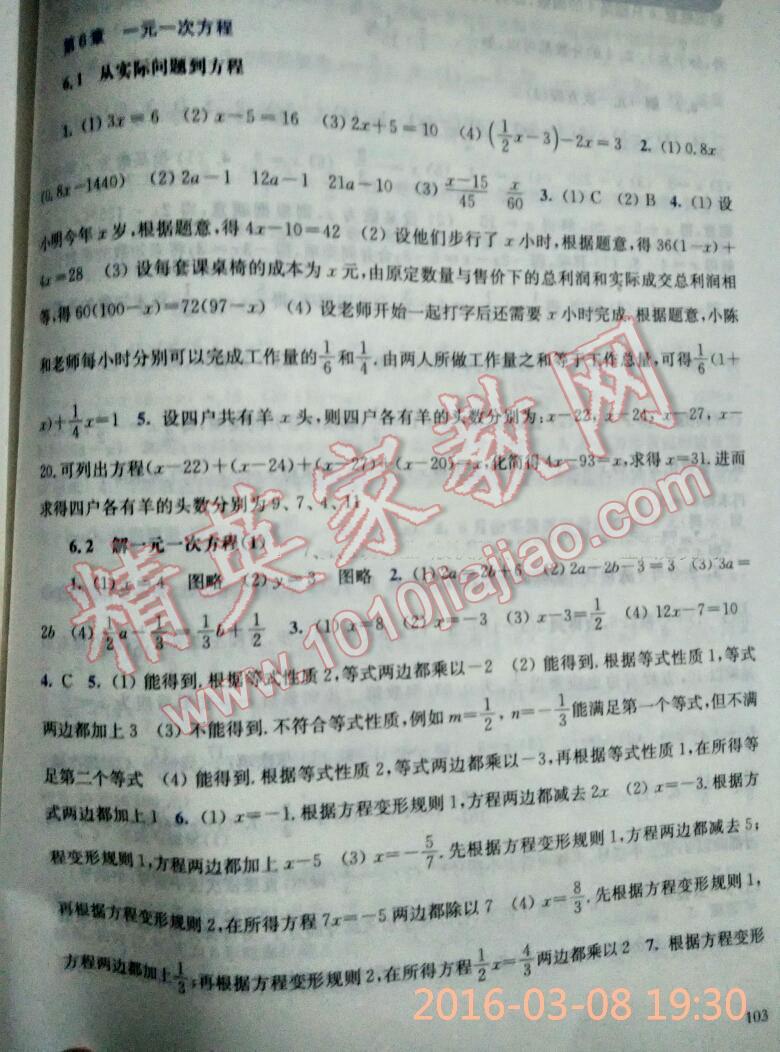 第6章 一元一次方程
6.1 从实际问题到方程
1. (1) 3x=6 (2) x-5=16 (3) 2x+5=10 (4) (1/2x-3)-2x=3 2. (1) 0.8x
(0.8x-1440) (2) 2a-1 12a-1 21a-10 (3) x-15/45 x/60 3. (1) C (2) B 4. (1) 设
小明今年 x 岁,根据题意,得 4x-10=42 (2) 设他们步行了 x 小时,根据题意,得 36(1-x)+
4x=28 (3) 设每套课桌椅的成本为 x 元,由原定数量与售价下的总利润和实际成交总利润相
等,得 60(100-x)=72(97-x) (4) 设老师开始一起打字后还需要 x 小时完成.根据题意,小陈
和老师每小时分别可以完成工作量的1/6和1/4.由两人所做工作量之和等于工作总量,可得1/6(1+
x)+1/4x=1 5. 设四户共有羊 x 头,则四户各有羊的头数分别为:x-22, x-24, x-27, x-
20.可列出方程(x-22)+(x-24)+(x-27)+(x-20)=x,化简得 4x-93=x,求得 x=31.进而
求得四户各有羊的头数分别为 9、7、4、11
6.2 解一元一次方程(1)
1. (1) x=4 图略 (2) y=3 图略 2. (1) 2a=2b+6 (2) 2a-2b-3=3 (3) 3a=
2b (4) 1/2a-1/3=1/3b+1/2 3. (1) x=8 (2) x=-3 (3) x-3=1/2 (4) 12x-7=10
4. C 5. (1) 能得到.根据等式性质 2,等式两边都乘以-2 (2) 能得到.根据等式性质 1,等式
两边都加上 3 (3) 不能得到.不符合等式性质,例如 m=1/2, n=-1/3能满足第一个等式,但不满
足第二个等式 (4) 能得到.根据等式性质 2,等式两边都乘以-3,再根据等式性质 1,在所得等
式两边都加上 1 6. (1) x=-1.根据方程变形规则 1,方程两边都减去 2x (2) x=-3.根据方
程变形规则 1,方程两边都加上 x-5 (3) x=-5/7.先根据方程变形规则 1,方程两边都减去 5;
再根据方程变形规则 2,在所得方程 7x=-5 两边都除以 7 (4) x=8/3.先根据方程变形规则 1,
方程两边都加上1/3;再根据方程变形规则 2,在所得方程1/2x=4/3两边都乘以 2 7. 根据方程变形
103
精英家教网
www.1010jiajiao.com
2016-03-08 19:30